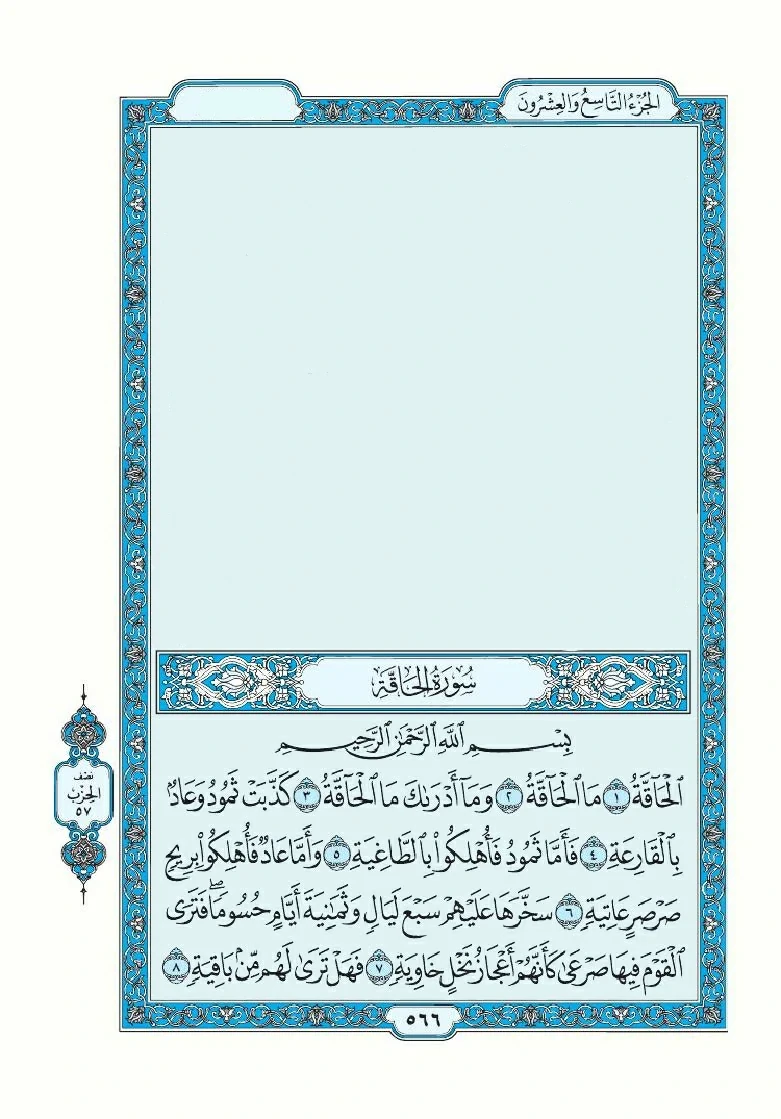 الجُزْءُ التَّاسِعُ وَالعِشْرُونَ
سُورَةُ الحَاقَّةِ
بِسْمِ ٱللَّهِ ٱلرَّحْمَٰنِ ٱلرَّحِيمِ
ٱلْحَآقَّةُ ١ مَا ٱلْحَآقَّةُ ٢ وَمَآ أَدْرَىٰكَ مَا ٱلْحَآقَّةُ ٣ كَذَّبَتْ ثَمُودُ وَعَادٌۢ
بِٱلْقَارِعَةِ ٤ فَأَمَّا ثَمُودُ فَأُهْلِكُوا۟ بِٱلطَّاغِيَةِ ٥ وَأَمَّا عَادٌ فَأُهْلِكُوا۟ بِرِيحٍ
صَرْصَرٍ عَاتِيَةٍ ٦ سَخَّرَهَا عَلَيْهِمْ سَبْعَ لَيَالٍ وَثَمَٰنِيَةَ أَيَّامٍ حُسُومًاۖ فَتَرَى
ٱلْقَوْمَ فِيهَا صَرْعَىٰ كَأَنَّهُمْ أَعْجَازُ نَخْلٍ خَاوِيَةٍ ٧ فَهَلْ تَرَىٰ لَهُم مِّنۢ بَاقِيَةٍ ٨
نصف
الحِزْب
٥٧
٥٦٦